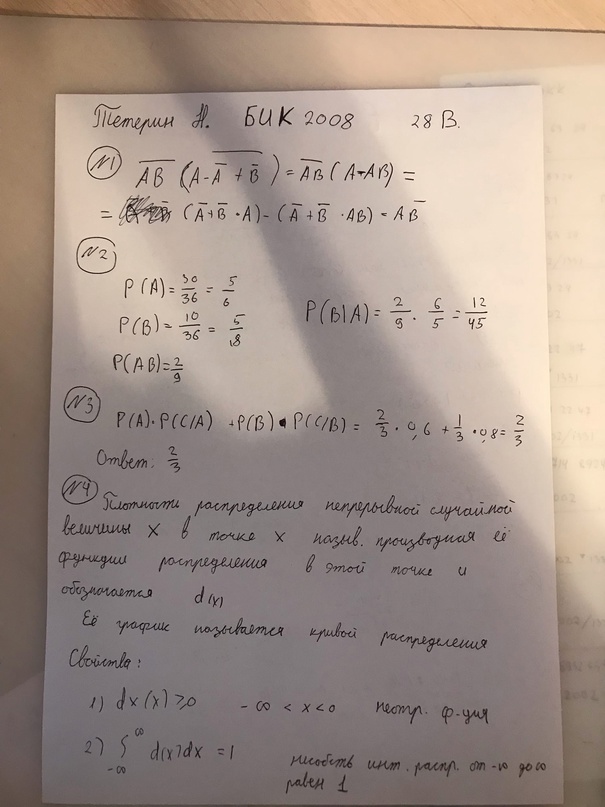 Тетерин Н. БИК 2008 28 В.
№1 \overline{AB} (A - \overline{\overline{A} + \overline{B}}) = \overline{AB} (A - AB) =
= (\overline{A} + \overline{B} · A) - (\overline{A} + \overline{B} · AB) = A\overline{B}
№2
P(A) = 30/36 = 5/6
P(B) = 10/36 = 5/18
P(B|A) = 2/9 · 6/5 = 12/45
P(AB) = 2/9
№3
P(A) · P(C/A) + P(B) · P(C/B) = 2/3 · 0,6 + 1/3 · 0,8 = 2/3
Ответ: 2/3
№4 Плотности распределения непрерывной случайной
величины X в точке x назыв. производная её
функции распределения в этой точке и
обозначается d(x)
Её график называется кривой распределения
Свойства:
1) dx(x) ≥ 0 - ∞ < x < 0 неотр. ф-ция
2) ∫_{-∞}^{∞} d(x)dx = 1
несобств инт. распр. от -∞ до ∞
равен 1